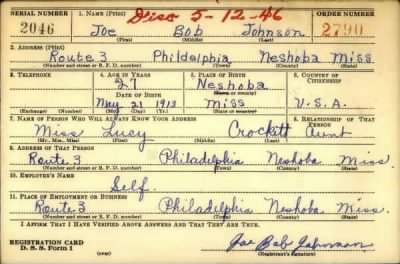 SERIAL NUMBER 1. NAME (Print) Disc 5-12-46 ORDER NUMBER
2046 Joe Bob Johnson 2790
(First) (Middle) (Last)
2. ADDRESS (Print)
Route 3 Phildelphia Neshoba Miss
(Number and street or R. F. D. number) (Town) (County) (State)
3. TELEPHONE 4. AGE IN YEARS 5. PLACE OF BIRTH 6. COUNTRY OF CITIZENSHIP
27 Neshoba
DATE OF BIRTH (Town or county)
May 21 1913 Miss U.S.A.
(Exchange) (Number) (Mo.) (Day) (Yr.) (State or country)
7. NAME OF PERSON WHO WILL ALWAYS KNOW YOUR ADDRESS 8. RELATIONSHIP OF THAT PERSON
Miss Lucy Crockett Aunt
(Mr., Mrs., Miss) (First) (Middle) (Last)
9. ADDRESS OF THAT PERSON
Route 3 Philadelphia Neshoba Miss
(Number and street or R. F. D. number) (Town) (County) (State)
10. EMPLOYER'S NAME
Self.
11. PLACE OF EMPLOYMENT OR BUSINESS
Route 3 Philadelphia Neshoba Miss.
(Number and street or R. F. D. number) (Town) (County) (State)
I AFFIRM THAT I HAVE VERIFIED ABOVE ANSWERS AND THAT THEY ARE TRUE.
REGISTRATION CARD
D. S. S. Form 1 Joe Bob Johnson
(Registrant's signature)